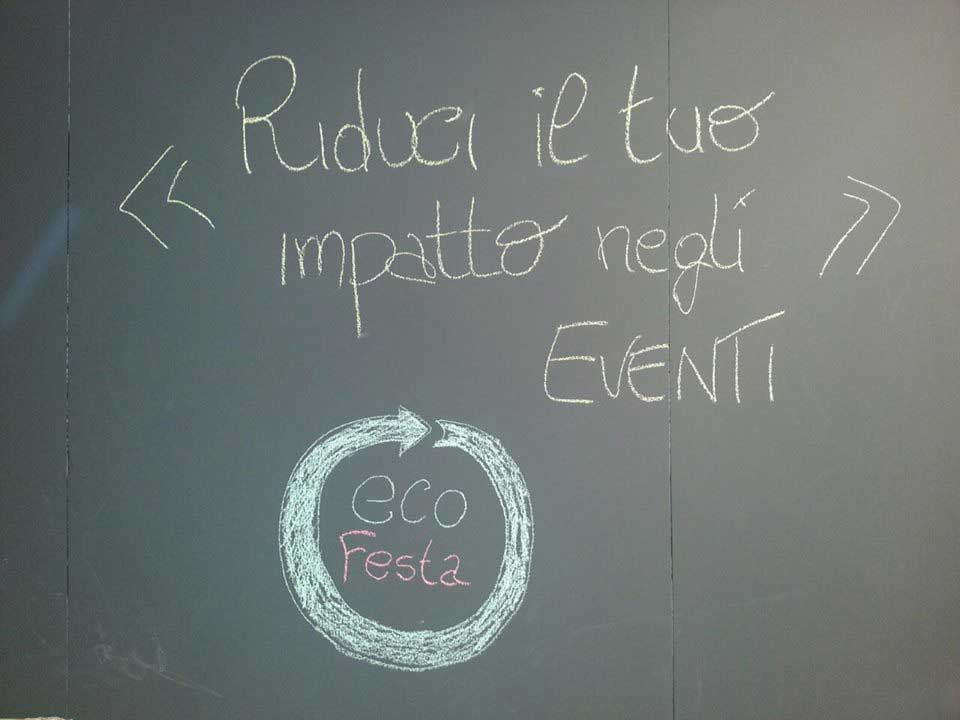 « Riduci il tuo
impatto negli »
EVENTI
eco
Festa